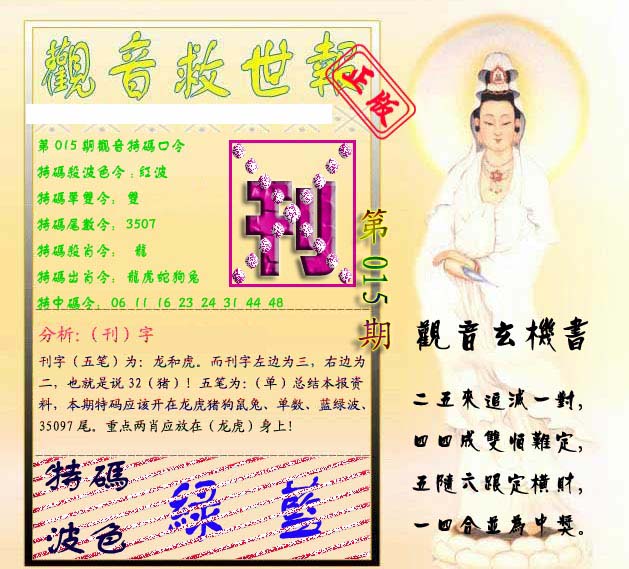 觀音救世報
正版
第 015 期觀音特碼口令
特碼殺波色令：紅波
特碼單雙令： 雙
特碼尾數令： 3507
特碼殺肖令： 龍
特碼出肖令： 龍虎蛇狗兔
特中碼令： 06 11 16 23 24 31 44 48
刊
第 015 期
分析:（刊）字
刊字（五笔）为：龙和虎。而刊字左边为三，右边为
二，也就是说 32（猪）！五笔为：（单）总结本报资
料，本期特码应该开在龙虎猪狗鼠兔、单数、蓝绿波、
35097 尾。重点两肖应放在（龙虎）身上！
特碼
波色
綠 藍
觀音玄機書
二五來追減一對，
四四成雙恒難定，
五隨六跟定橫財，
一四合並為中獎。